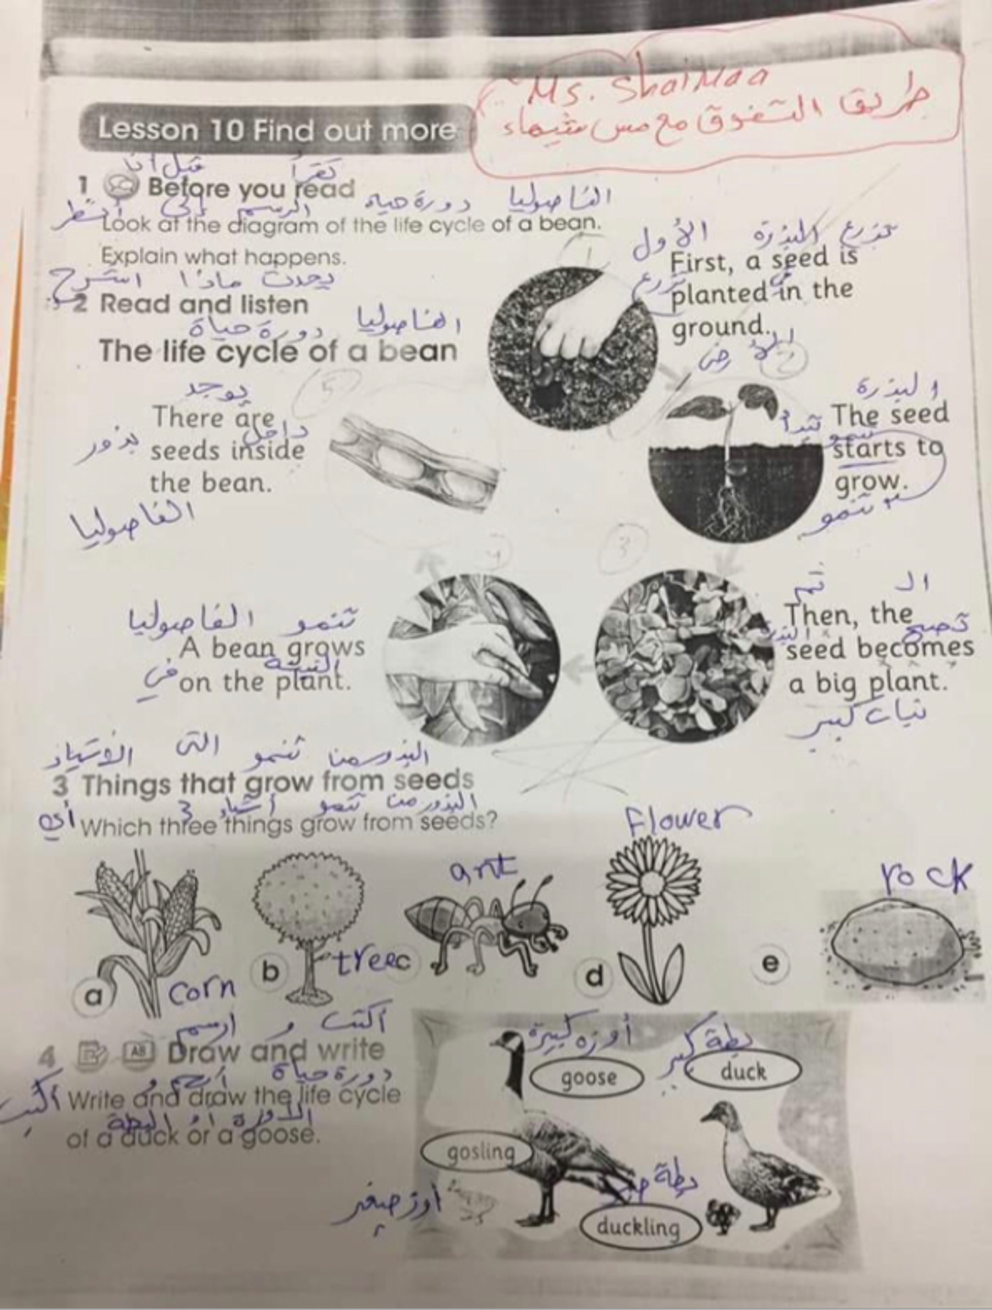 Ms. Shaimaa
طريق التفوق مع مس شيماء
Lesson 10 Find out more
قبل أن تقرأ
1 Before you read
أنظر إلى الرسم دورة حياه الفاصوليا
Look at the diagram of the life cycle of a bean.
Explain what happens.
اشرح ماذا يحدث
2 Read and listen
دورة حياة الفاصوليا
The life cycle of a bean
1
الأول البذرة تزرع
First, a seed is
تزرع في
planted in the
ground.
الأرض
2
البذرة
The seed
تبدأ
starts to
grow.
تنمو
3
ثم الـ
Then, the
تصبح
seed becomes
a big plant.
نبات كبير
4
تنمو الفاصوليا
A bean grows
النبتة
on the plant.
في
5
يوجد
There are
داخل
بذور
seeds inside
the bean.
الفاصوليا
الأشياء التى تنمو من البذور
3 Things that grow from seeds
أي 3 أشياء تنمو من البذور
Which three things grow from seeds?
a corn
b tree
c ant
d Flower
e rock
أكتب و ارسم
4 AB Draw and write
دورة حياة
Write and draw the life cycle
أكتب
of a duck or a goose.
أوزه كبيرة
goose
بطة كبير
duck
gosling
أوز صغير
بطة
duckling